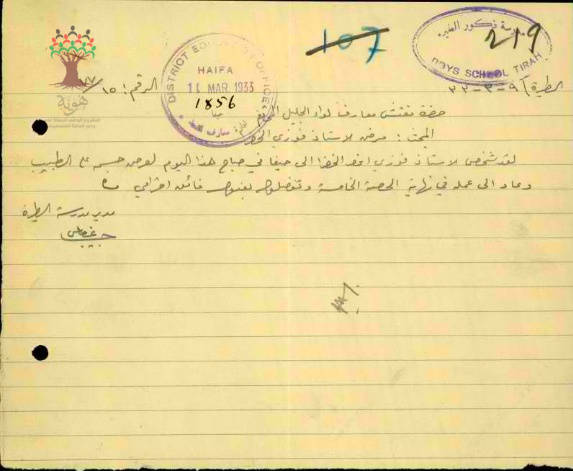 107
مدرسة ذكور الطيرة
219
BOYS SCHOOL TIRAH
DISTRICT EDUCATION OFFICE
HAIFA
11 MAR 1933
1856
حيفا
هوية
الرقم: ١٥/
الطيرة ٩-٣-٣٣
حضرة مفتش معارف لواء الجليل المحترم
المبحث: مرض الاستاذ فوزي الخضر
لقد شخص الاستاذ فوزي الخضرا الى حيفا في صباح هذا اليوم لعرض جسمه على الطبيب
وعاد الى عمله في نهاية الحصة الخامسة وتفضلوا بقبول فائق احترامي
مدير مدرسة الطيرة